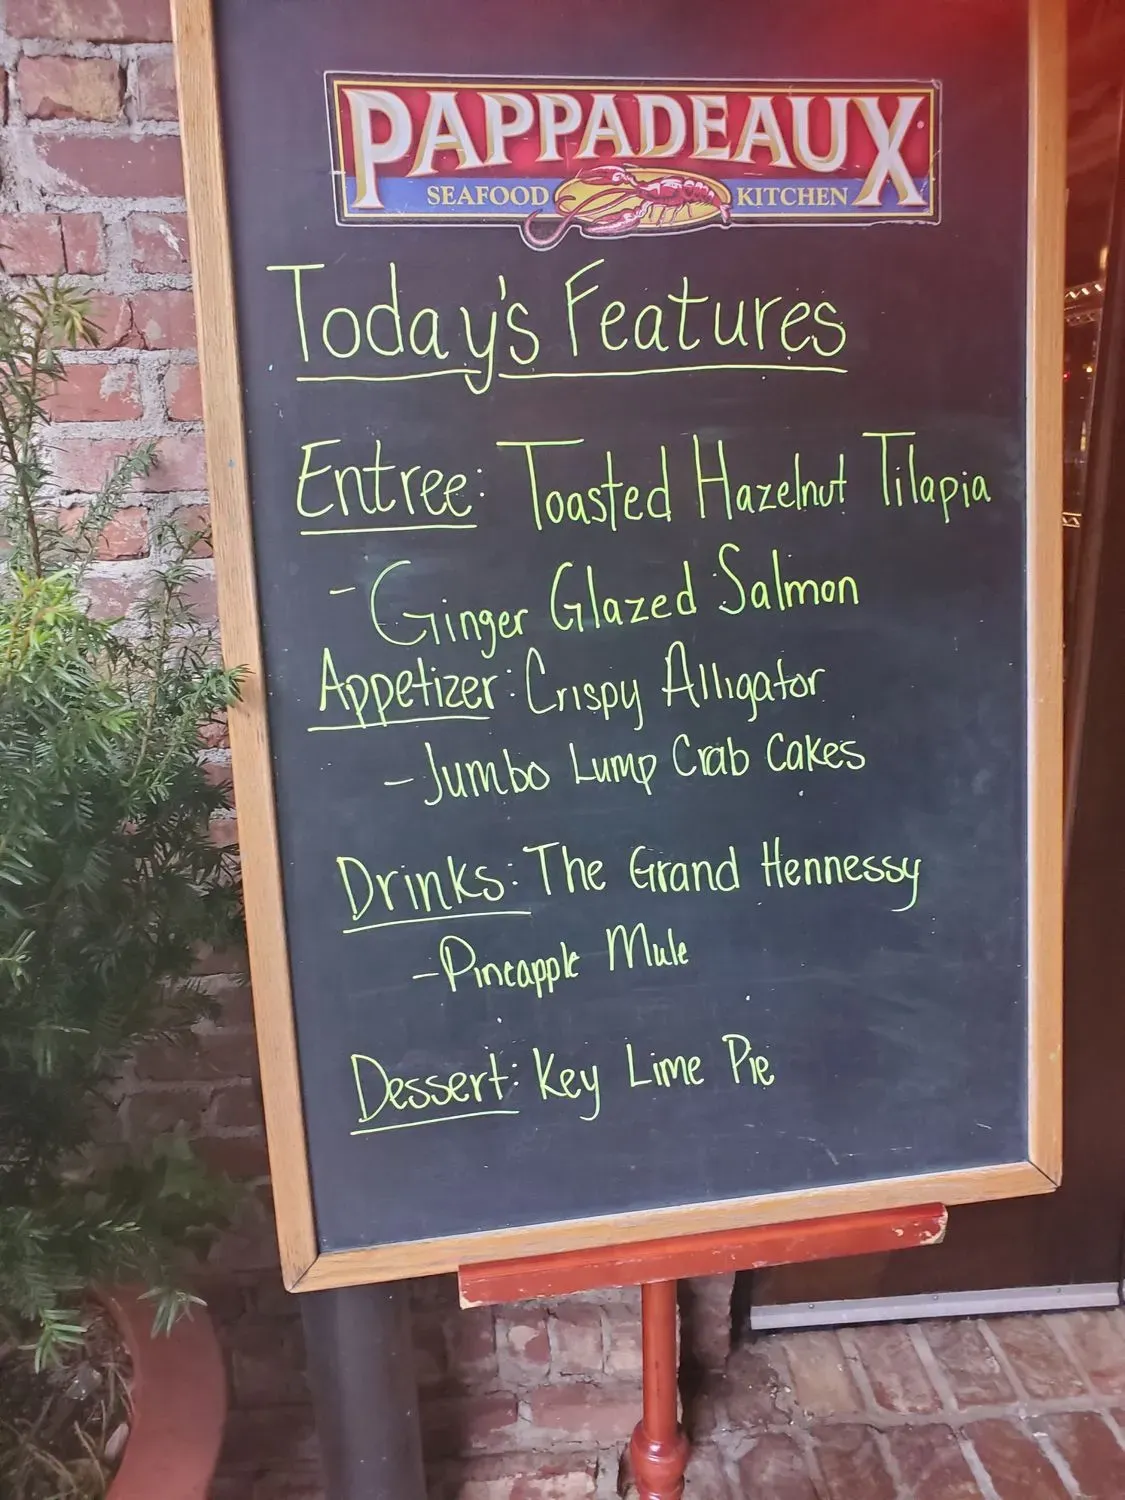 PAPPADEAUX
SEAFOOD KITCHEN
Today's Features
Entree: Toasted Hazelnut Tilapia
- Ginger Glazed Salmon
Appetizer: Crispy Alligator
- Jumbo Lump Crab Cakes
Drinks: The Grand Hennessy
- Pineapple Mule
Dessert: Key Lime Pie